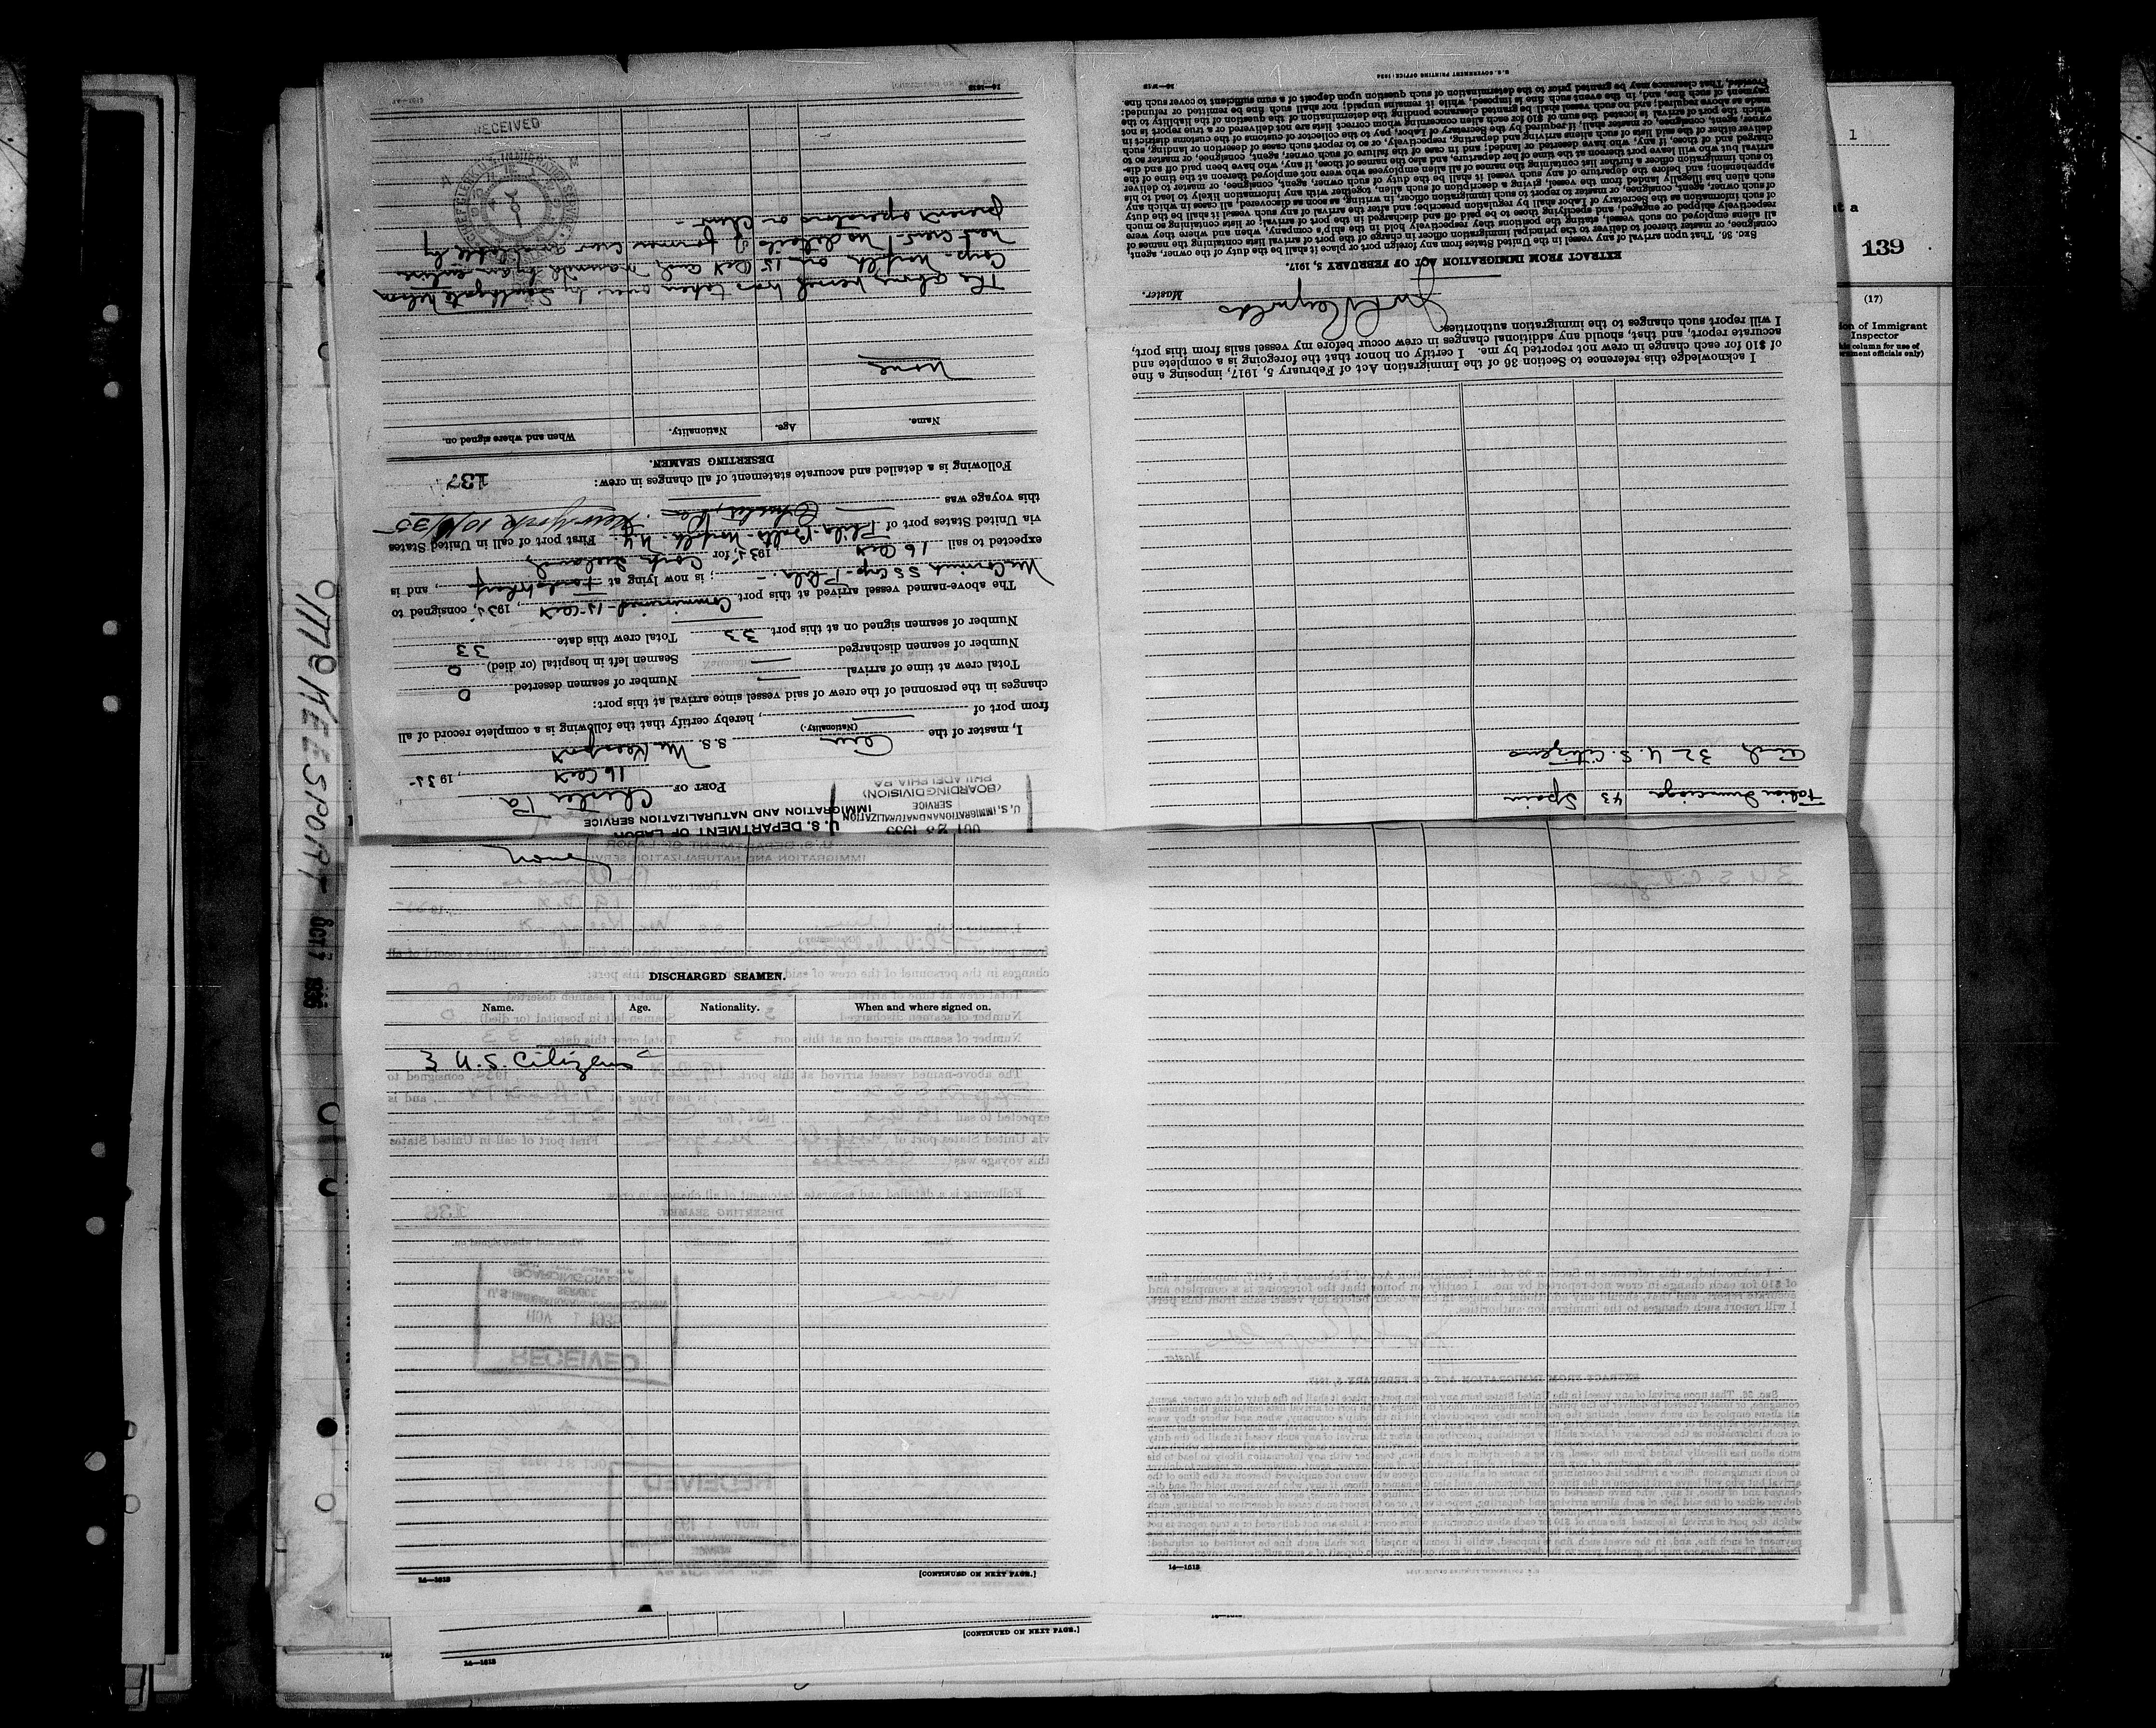 U. S. DEPARTMENT OF LABOR
IMMIGRATION AND NATURALIZATION SERVICE
OCT 28 1935
U. S. IMMIGRATION AND NATURALIZATION
SERVICE
(BOARDING DIVISION)
PHILADELPHIA PA
PORT OF Chester Pa.
16 Oct, 1935
S. S. McKeesport
I, master of the
(Nationality.)
from port of , hereby certify that the following is a complete record of all
changes in the personnel of the crew of said vessel since arrival at this port:
Total crew at time of arrival — Number of seamen deserted 0
Number of seamen discharged — Seamen left in hospital (or died) 0
Number of seamen signed on at this port 33 Total crew this date 33
The above-named vessel arrived at this port Commissioned - 15 Oct, 1935, consigned to
McCormick SS Corp - Phila. ; is now lying at Ford Wharf, and is
expected to sail 16 Oct 1935, for
via United States port of Phila - Balto - Norfolk - N.Y. First port of call in United States
this voyage was Chester, Pa. New York
Following is a detailed and accurate statement of all changes in crew: 137
DESERTING SEAMEN.
Name. Age. Nationality. When and where signed on.
None
The above vessel was taken over by Southgate Nelson
Corp. Norfolk on 15 Oct and manned by an entire
new crew - No details of former crew available by
present operators or Client -
RECEIVED
14—1618
Fabian 43 Spain
and 32 U. S. Citizens
I acknowledge this reference to Section 36 of the Immigration Act of February 5, 1917, imposing a fine
of $10 for each change in crew not reported by me. I certify on honor that the foregoing is a complete and
accurate report, and that, should any additional changes in crew occur before my vessel sails from this port,
I will report such changes to the immigration authorities.
Reynolds
Master.
EXTRACT FROM IMMIGRATION ACT OF FEBRUARY 5, 1917.
SEC. 36. That upon arrival of any vessel in the United States from any foreign port or place it shall be the duty of the owner, agent,
consignee, or master thereof to deliver to the principal immigration officer in charge of the port of arrival lists containing the names of
all aliens employed on such vessel, stating the positions they respectively hold in the ship's company, when and where they were
respectively shipped or engaged, and specifying those to be paid off and discharged in the port of arrival; or lists containing so much
of such information as the Secretary of Labor shall by regulation prescribe; and after the arrival of any such vessel it shall be the duty
of such owner, agent, consignee, or master to report to such immigration officer, in writing, as soon as discovered, all cases in which any
such alien has illegally landed from the vessel, giving a description of such alien, together with any information likely to lead to his
apprehension; and before the departure of any such vessel it shall be the duty of such owner, agent, consignee, or master to deliver
to such immigration officer a further list containing the names of all alien employees who were not employed thereon at the time of the
arrival but who will leave port thereon at the time of her departure, and also the names of those, if any, who have been paid off and dis-
charged and of those, if any, who have deserted or landed; and in case of the failure of such owner, agent, consignee, or master so to
deliver either of the said lists of such aliens arriving and departing, respectively, or so to report such cases of desertion or landing, such
owner, agent, consignee, or master shall, if required by the Secretary of Labor, pay to the collector of customs of the customs district in
which the port of arrival is located the sum of $10 for each alien concerning whom correct lists are not delivered or a true report is not
made as above required; and no such vessel shall be granted clearance pending the determination of the question of the liability to the
payment of such fine, and, in the event such fine is imposed, while it remains unpaid; nor shall such fine be remitted or refunded:
Provided, That clearance may be granted prior to the determination of such question upon deposit of a sum sufficient to cover such fine.
U. S. GOVERNMENT PRINTING OFFICE: 1934
DISCHARGED SEAMEN.
Name. Age. Nationality. When and where signed on.
3 U. S. Citizens
14—1618 [CONTINUED ON NEXT PAGE.]
14—1618
[CONTINUED ON NEXT PAGE.]
14—1618
McKEESPORT OCT 17 1935
1
139
(17)
of Immigrant
Inspector
column for use of
officials only)